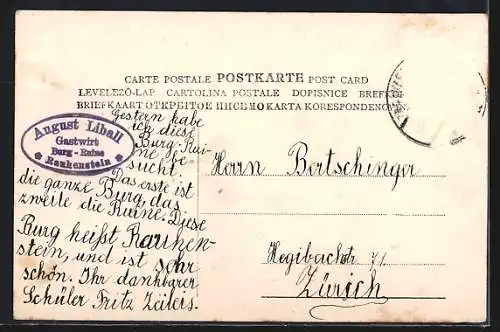 CARTE POSTALE POSTKARTE POST CARD
LEVELEZŐ-LAP CARTOLINA POSTALE DOPISNICE BREFK
BRIEFKAART ОТКРЫТОЕ ПИСЬМО KARTA KORESPONDENC
August Liball
Gastwirt
Burg-Ruine
Rauhenstein
Gestern habe
ich diese
Burg-Rui-
ne be
sucht.
Das erste ist
die ganze Burg, das
zweite die Ruine. Diese
Burg heißt Rauhen-
stein, und ist sehr
schön. Ihr dankbarer
Schüler Fritz Zeileis.
Herrn Bertschinger
Hegibachstr. 71
Zürich